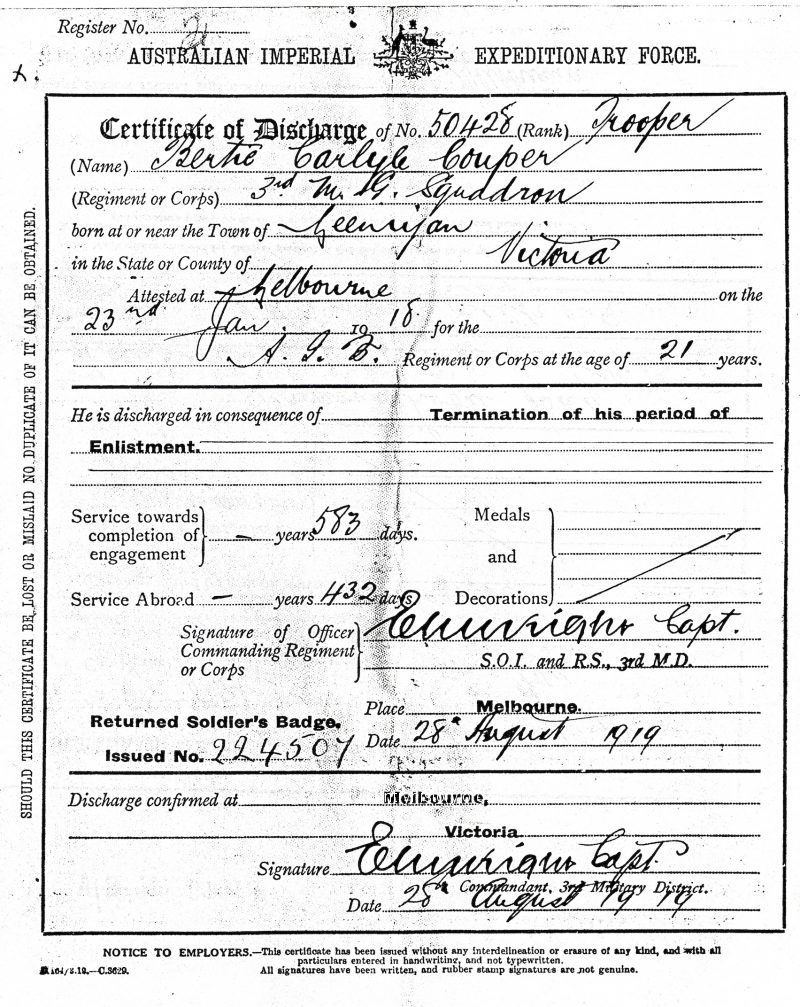 Register No.
AUSTRALIAN IMPERIAL EXPEDITIONARY FORCE.
Certificate of Discharge of No. 50428 (Rank) Trooper
(Name) Bertie Carlyle Couper
(Regiment or Corps) 3rd M. G. Squadron
born at or near the Town of
in the State or County of Victoria
Attested at Melbourne on the
23nd Jan. 1918 for the
A. I. F. Regiment or Corps at the age of 21 years.
He is discharged in consequence of Termination of his period of
Enlistment.
Service towards completion of engagement } — years 583 days.
Medals and Decorations }
Service Abroad — years 432 days
Signature of Officer Commanding Regiment or Corps } Capt.
S.O.I. and R.S., 3rd M.D.
Returned Soldier's Badge.
Issued No. 224507
Place Melbourne.
Date 28th August 1919
Discharge confirmed at Melbourne,
Victoria
Signature Capt
Commandant, 3rd Military District.
Date 28th August 1919
SHOULD THIS CERTIFICATE BE LOST OR MISLAID NO DUPLICATE OF IT CAN BE OBTAINED.
NOTICE TO EMPLOYERS.—This certificate has been issued without any interdelineation or erasure of any kind, and with all
particulars entered in handwriting, and not typewritten.
All signatures have been written, and rubber stamp signatures are not genuine.
C.3629.